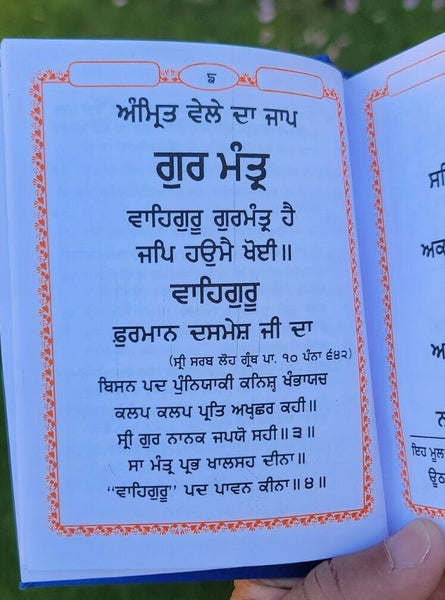 ੲ
ਅੰਮ੍ਰਿਤ ਵੇਲੇ ਦਾ ਜਾਪ
ਗੁਰ ਮੰਤ੍ਰ
ਵਾਹਿਗੁਰੂ ਗੁਰਮੰਤ੍ਰ ਹੈ
ਜਪਿ ਹਉਮੈ ਖੋਈ॥
ਵਾਹਿਗੁਰੂ
ਫ਼ੁਰਮਾਨ ਦਸਮੇਸ਼ ਜੀ ਦਾ
(ਸ੍ਰੀ ਸਰਬ ਲੋਹ ਗ੍ਰੰਥ ਪਾ. ੧੦ ਪੰਨਾ ੬੪੨)
ਬਿਸਨ ਪਦ ਪੁੰਨਿਯਾਕੀ ਕਨਿਸ਼੍ਹ ਖੰਭਾਯਚ
ਕਲਪ ਕਲਪ ਪ੍ਰਤਿ ਅਖੵਛਰ ਕਹੀ॥
ਸ੍ਰੀ ਗੁਰ ਨਾਨਕ ਜਪਯੋ ਸਹੀ॥੩॥
ਸਾ ਮੰਤ੍ਰ ਪ੍ਰਭ ਖਾਲਸਹ ਦੀਨਾ॥
“ਵਾਹਿਗੁਰੂ” ਪਦ ਪਾਵਨ ਕੀਨਾ॥੪॥
ਇਹ ਮੂਲ